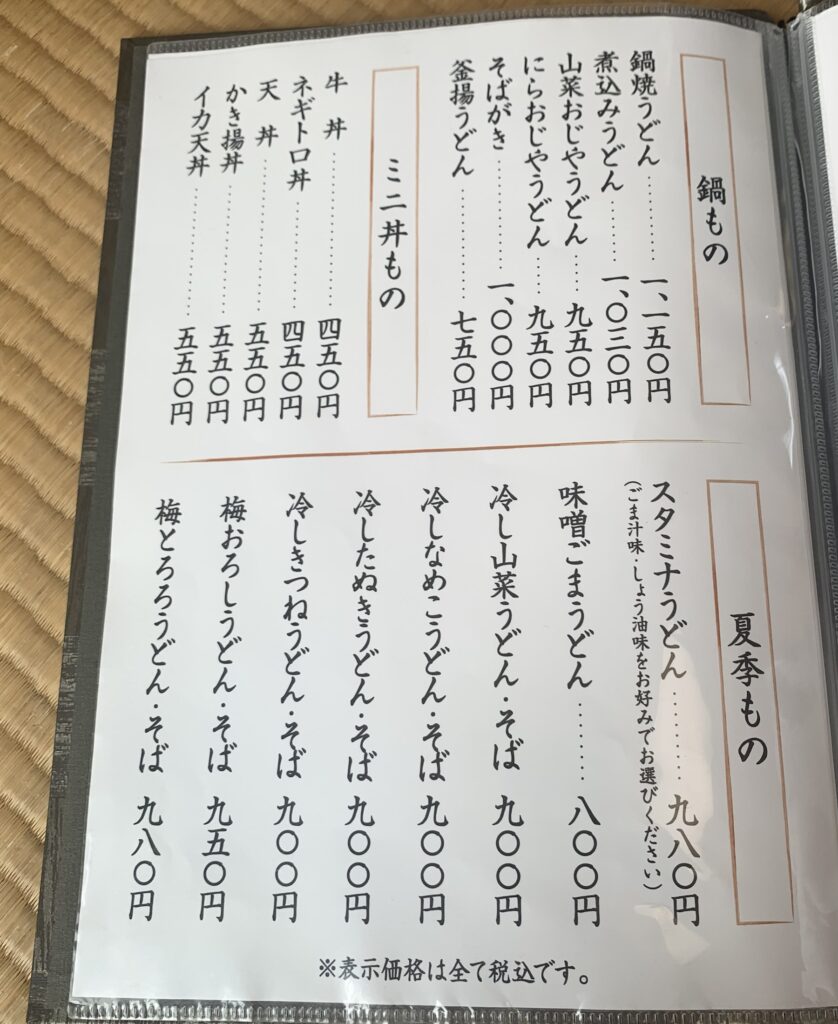 鍋もの
鍋焼うどん………一、一五〇円
煮込みうどん……一、〇三〇円
山菜おじやうどん…九五〇円
にらおじやうどん…九五〇円
そばがき…………一、〇〇〇円
釜揚うどん…………七五〇円
ミニ丼もの
牛丼……………四五〇円
ネギトロ丼………四五〇円
天丼……………五五〇円
かき揚丼…………五五〇円
イカ天丼…………五五〇円
夏季もの
スタミナうどん………九八〇円
(ごま汁味・しょう油味をお好みでお選びください)
味噌ごまうどん………八〇〇円
冷し山菜うどん・そば 九〇〇円
冷しなめこうどん・そば 九〇〇円
冷したぬきうどん・そば 九〇〇円
冷しきつねうどん・そば 九〇〇円
梅おろしうどん・そば 九五〇円
梅とろろうどん・そば 九八〇円
※表示価格は全て税込です。